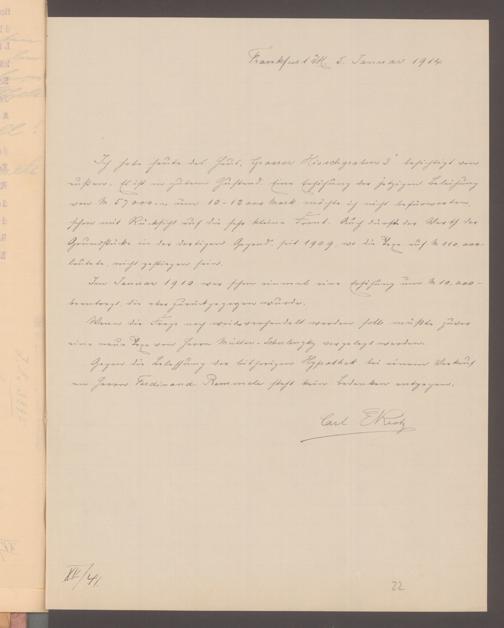 Frankfurt a/M, 5. Januar 1914
Ich habe heute das Haus, Grosser Hirschgraben 3 besichtigt von
außen. Es ist in gutem Zustand. Eine Erhöhung der jetzigen Beleihung
von M 57000.- um 10-12000 Mark möchte ich nicht befürworten,
schon mit Rücksicht auf die sehr kleine Front. Auch dürfte der Werth der
Grundstücke in der dortigen Gegend, seit 1909, wo die Taxe auf M 110000.-
lautete, nicht gestiegen sein.
Im Januar 1910 war schon einmal eine Erhöhung um M 10,000.-
beantragt, die aber zurückgezogen wurde.
Wenn die Frage noch weiter verhandelt werden soll, müßte zuvor
eine neue Taxe von Herrn vorgelegt werden.
Gegen die Belassung der bisherigen Hypothek bei einem Verkauf
an Herrn Ferdinand Rommele steht kein Bedenken entgegen.
Carl
22